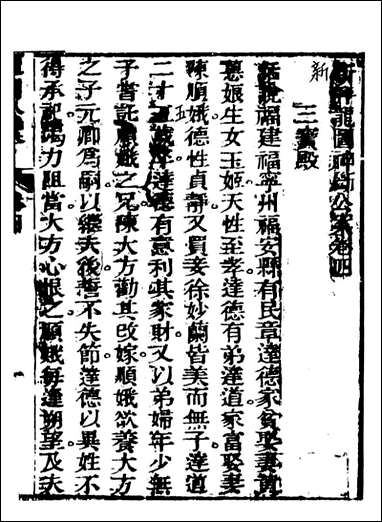 新
新評龍圖神斷公案卷四
三寶殿
話說福建福寧州福安縣有民章達德家貧娶妻黃
蕙娘生女玉姬天性至孝達德有弟達道家富娶妻
陳順娥德性貞靜又買妾徐妙蘭皆美而無子達道
二十五歲卒達德有意利其家財又以弟婦年少無
子嘗託順娥之兄陳大方勸其改嫁順娥欲養大方
之子元卿為嗣以繼夫後誓不失節達德以異姓不
得承祀竭力阻當大方心恨之順娥每逢朔望及夫